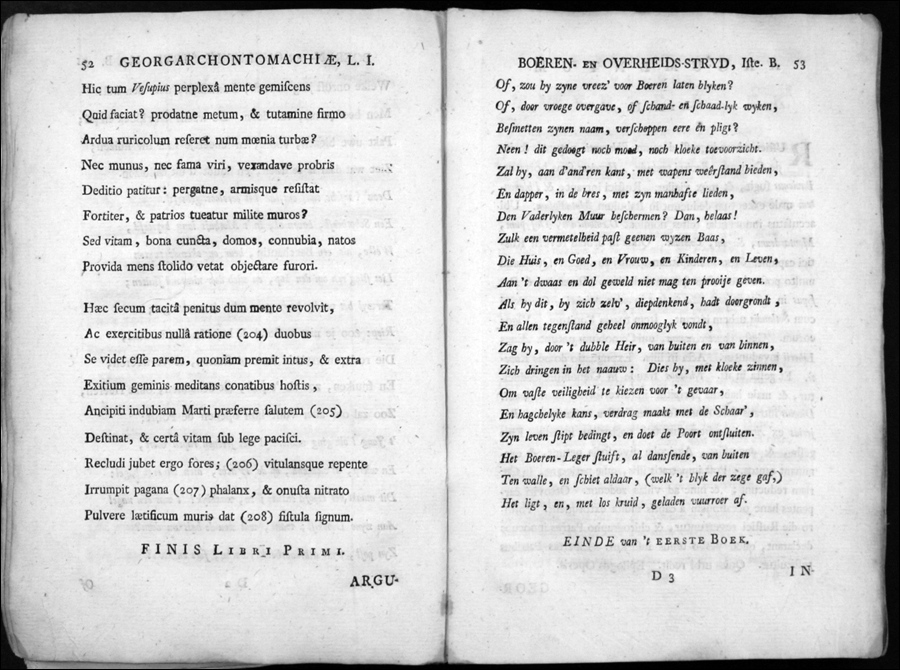 52 GEORGARCHONTOMACHIÆ, L. I.
Hic tum Veſupius perplexâ mente gemiſcens
Quid faciat? prodatne metum, & tutamine firmo
Ardua ruricolum reſeret num mœnia turbæ?
Nec munus, nec fama viri, vexandave probris
Deditio patitur: pergatne, armisque reſiſtat
Fortiter, & patrios tueatur milite muros?
Sed vitam, bona cuncta, domos, connubia, natos
Provida mens ſtolido vetat objectare furori.
Hæc ſecum tacitâ penitus dum mente revolvit,
Ac exercitibus nullâ ratione (204) duobus
Se videt eſſe parem, quoniam premit intus, & extra
Exitium geminis meditans conatibus hoſtis,
Ancipiti indubiam Marti præferre ſalutem (205)
Deſtinat, & certâ vitam ſub lege paciſci.
Recludi jubet ergo fores; (206) vitulansque repente
Irrumpit pagana (207) phalanx, & onuſta nitrato
Pulvere lætificum muris dat (208) fiſtula ſignum.
FINIS LIBRI PRIMI.
ARGU-
BOEREN- EN OVERHEIDS-STRYD, Iſte. B. 53
Of, zou hy zyne vreez' voor Boeren laten blyken?
Of, door vroege overgave, of ſchand- en ſchaad-lyk wyken,
Beſmetten zynen naam, verſchoppen eere en pligt?
Neen! dit gedoogt noch moed, noch kloeke toevoorzicht.
Zal hy, aan d'and'ren kant, met wapens weêrſtand bieden,
En dapper, in de bres, met zyn manhafte lieden,
Den Vaderlyken Muur beſchermen? Dan, helaas!
Zulk een vermetelheid paſt geenen wyzen Baas,
Die Huis, en Goed, en Vrouw, en Kinderen, en Leven,
Aan 't dwaas en dol geweld niet mag ten prooije geven.
Als hy dit, by zich zelv', diepdenkend, hadt doorgrondt,
En allen tegenſtand geheel onmooglyk vondt,
Zag hy, door 't dubble Heir, van buiten en van binnen,
Zich dringen in het naauw: Dies hy, met kloeke zinnen,
Om vaſte veiligheid te kiezen voor 't gevaar,
En hagchelyke kans, verdrag maakt met de Schaar',
Zyn leven ſtipt bedingt, en doet de Poort ontſluiten.
Het Boeren-Leger ſtuift, al dansſende, van buiten
Ten walle, en ſchiet aldaar, (welk 't blyk der zege gaf,)
Het ligt, en, met los kruid, geladen vuurroer af.
EINDE van 't EERSTE BOEK.
D 3
IN-